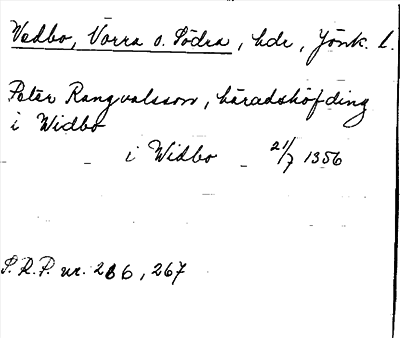 Vedbo, Norra o. Södra, hdr, Jönk. l.
Peter Rangvalsson, häradshöfding
i Widbo
- i Widbo - 21/7 1356
S.R.P. nr. 266, 267